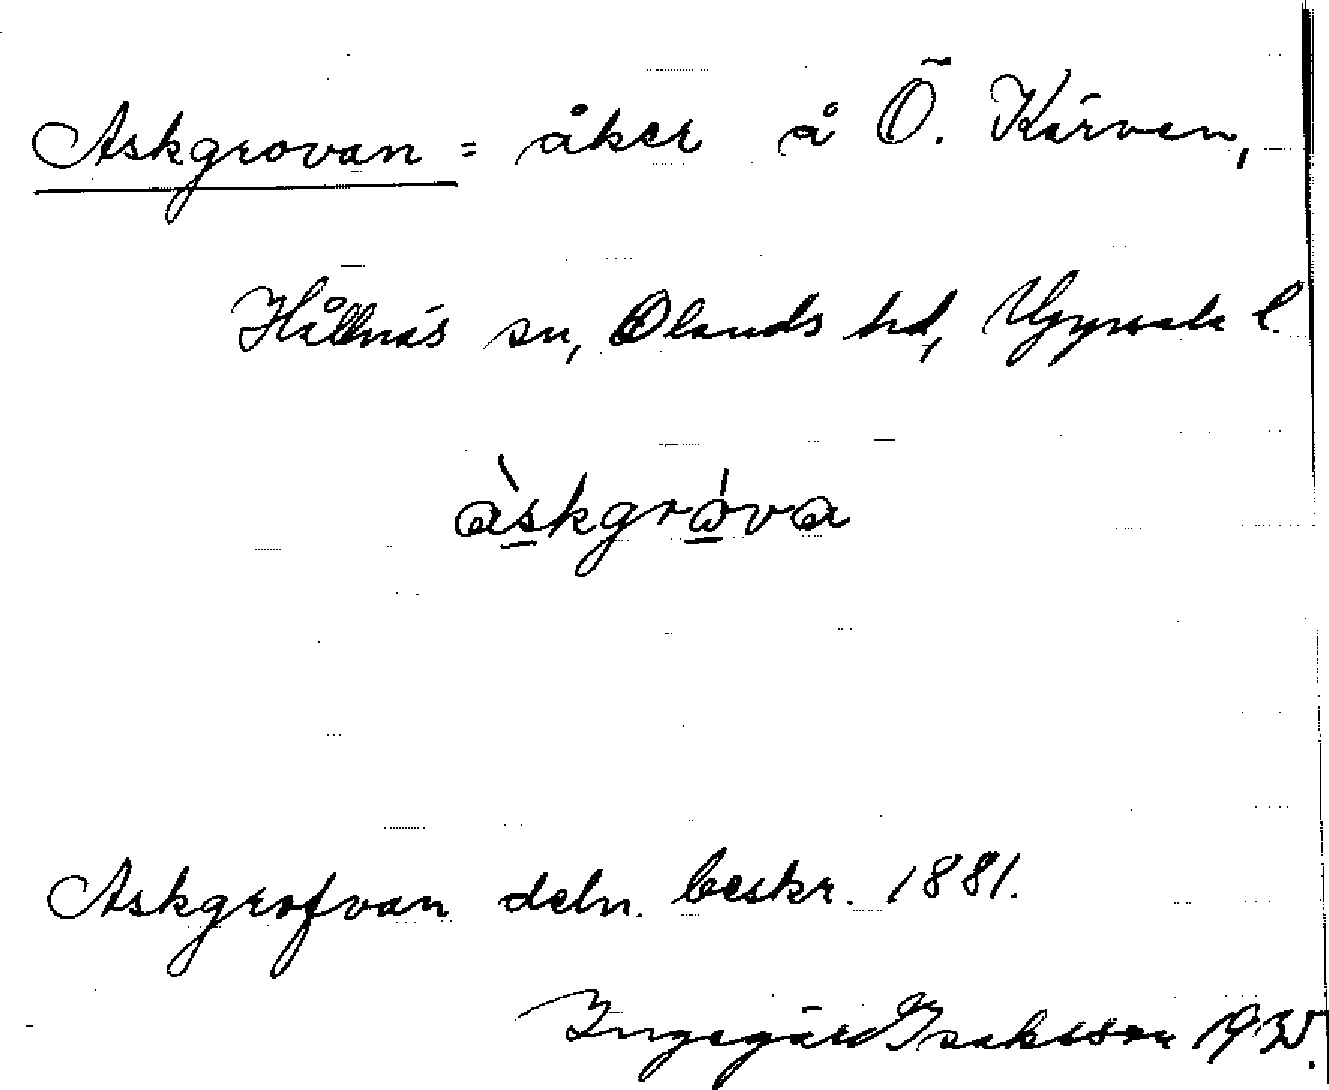 Askgrovan = åker å Ö. Kärven,
Hållnäs sn, Olands hd, Uppsala l.
àskgròva
Askgrofvan deln. beskr. 1881.
Ingegärd Isaksson